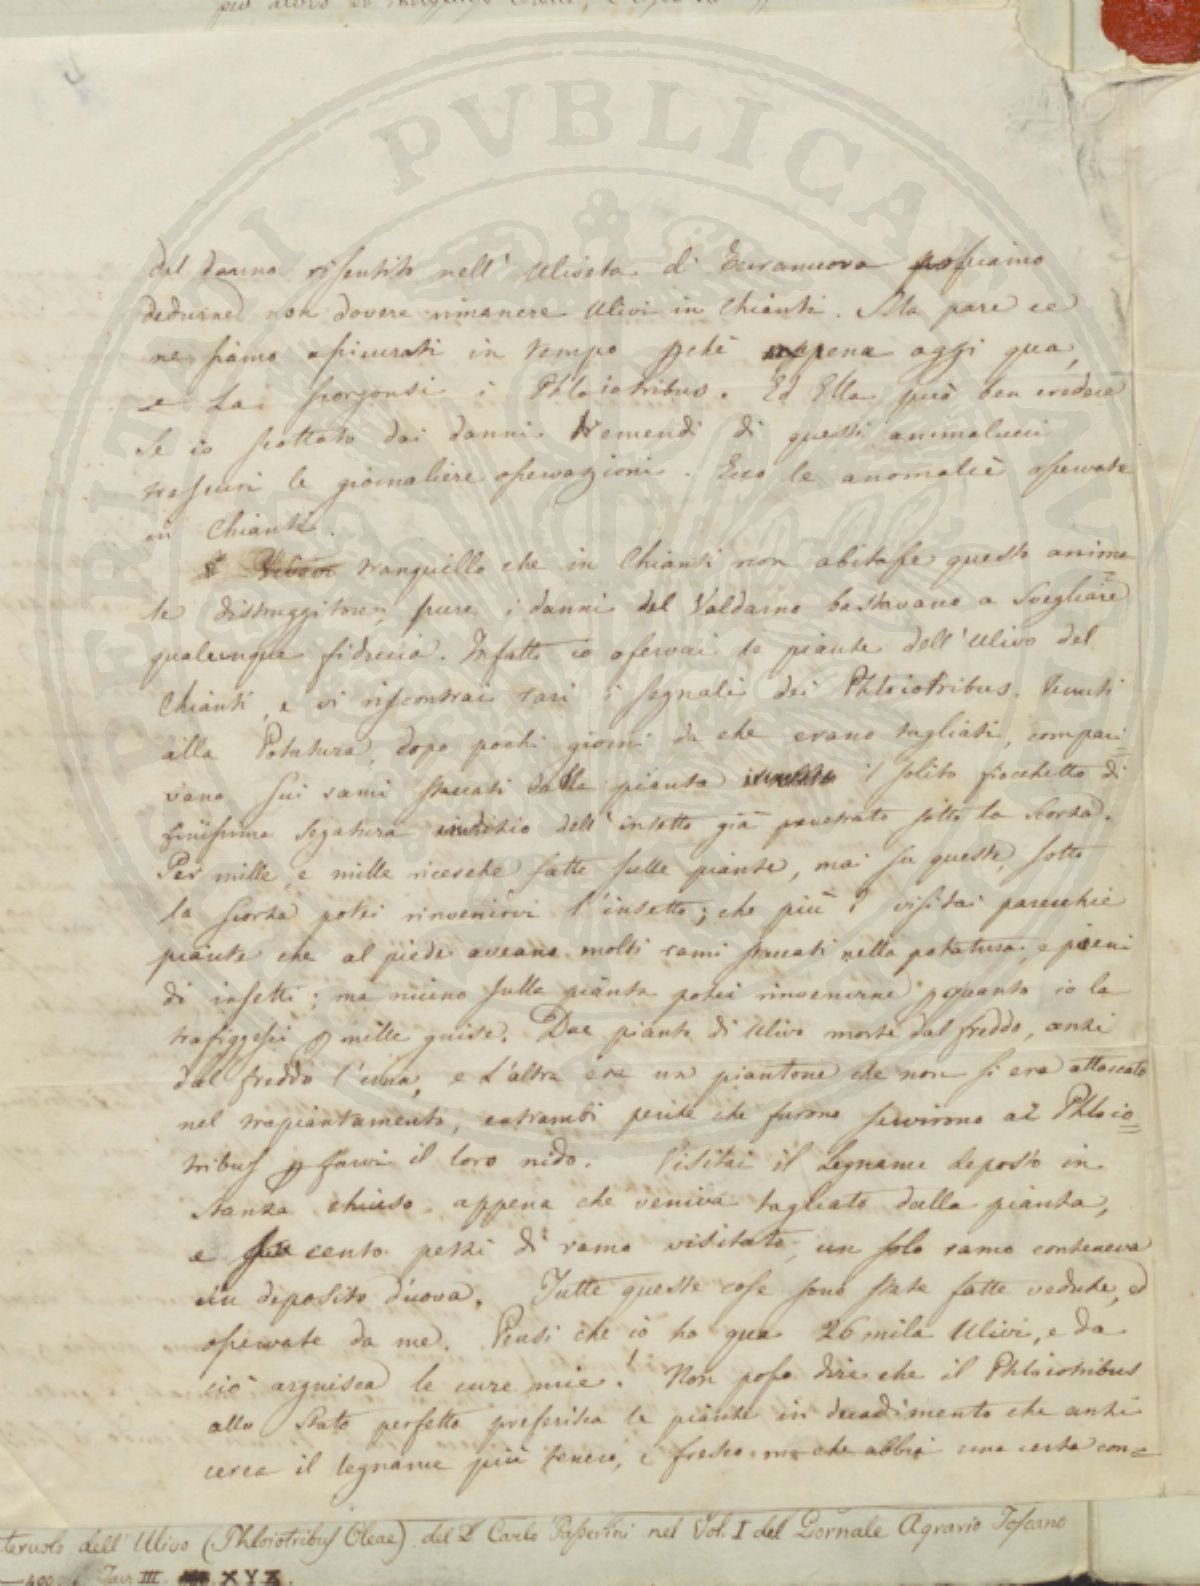 dal danno risentito nell' Uliveta di Terranuova possiamo
dedurne non dovere rimanere Ulivi in Chianti. Ma pare ce
ne siamo assicurati in tempo pchè appena oggi qua,
e là scorgonsi i Phloiotribus. Ed Ella può ben credere
se io scottato dai danni tremendi di questi animalucci
trascuri le giornaliere osservazioni. Ecco le anomalie osservate
in Chianti.
tranquillo che in Chianti non abitasse questo anima
le distruggitore, pure i danni del Valdarno bastavano a svegliare
qualunque fiducia. Infatti io osservai le piante dell' Ulivo del
Chianti, e vi riscontrai rari i segnali dei Phloiotribus. Venuti
alla Potatura, dopo pochi giorni da che erano tagliati, compari=
vano sui rami staccati dalla pianta il solito fiocchetto di
finissima segatura indizio dell' insetto già penetrato sotto la scorza.
Per mille, e mille ricerche fatte sulle piante, mai su queste, sotto
la scorza potei rinvenirvi l'insetto; che più? visitai parecchie
piante che al piede aveano molti rami staccati nella potatura, e pieni
di insetti; ma niuno sulla pianta potei rinvenirne pquanto io la
trafiggessi p mille guise. Due piante di Ulivo morte dal freddo, anzi
dal freddo l'una, e l'altra era un piantone che non si era attaccato
nel trapiantamento, entrambi perite che furono servirono ai Phloio=
tribus p farvi il loro nido. Visitai il legname deposto in
stanza chiuso appena che veniva tagliato dalla pianta,
e su cento pezzi di ramo visitato, un solo ramo conteneva
un deposito d'uova. Tutte queste cose sono state fatte vedute, ed
osservate da me. Pensi che io ho qua 26 mila Ulivi, e da
ciò arguisca le cure mie! Non posso dire che il Phloiotribus
allo stato perfetto preferisca le piante in decadimento che anzi
cerca il legname più tenero, e fresco ma che abbia una certa con=
teruolo dell' Ulivo (Phloiotribus Oleae) del D. Carlo Passerini nel Vol. I del Giornale Agrario Toscano
—400. Tav. III. XYZ.
PERITANI PVBLICAE